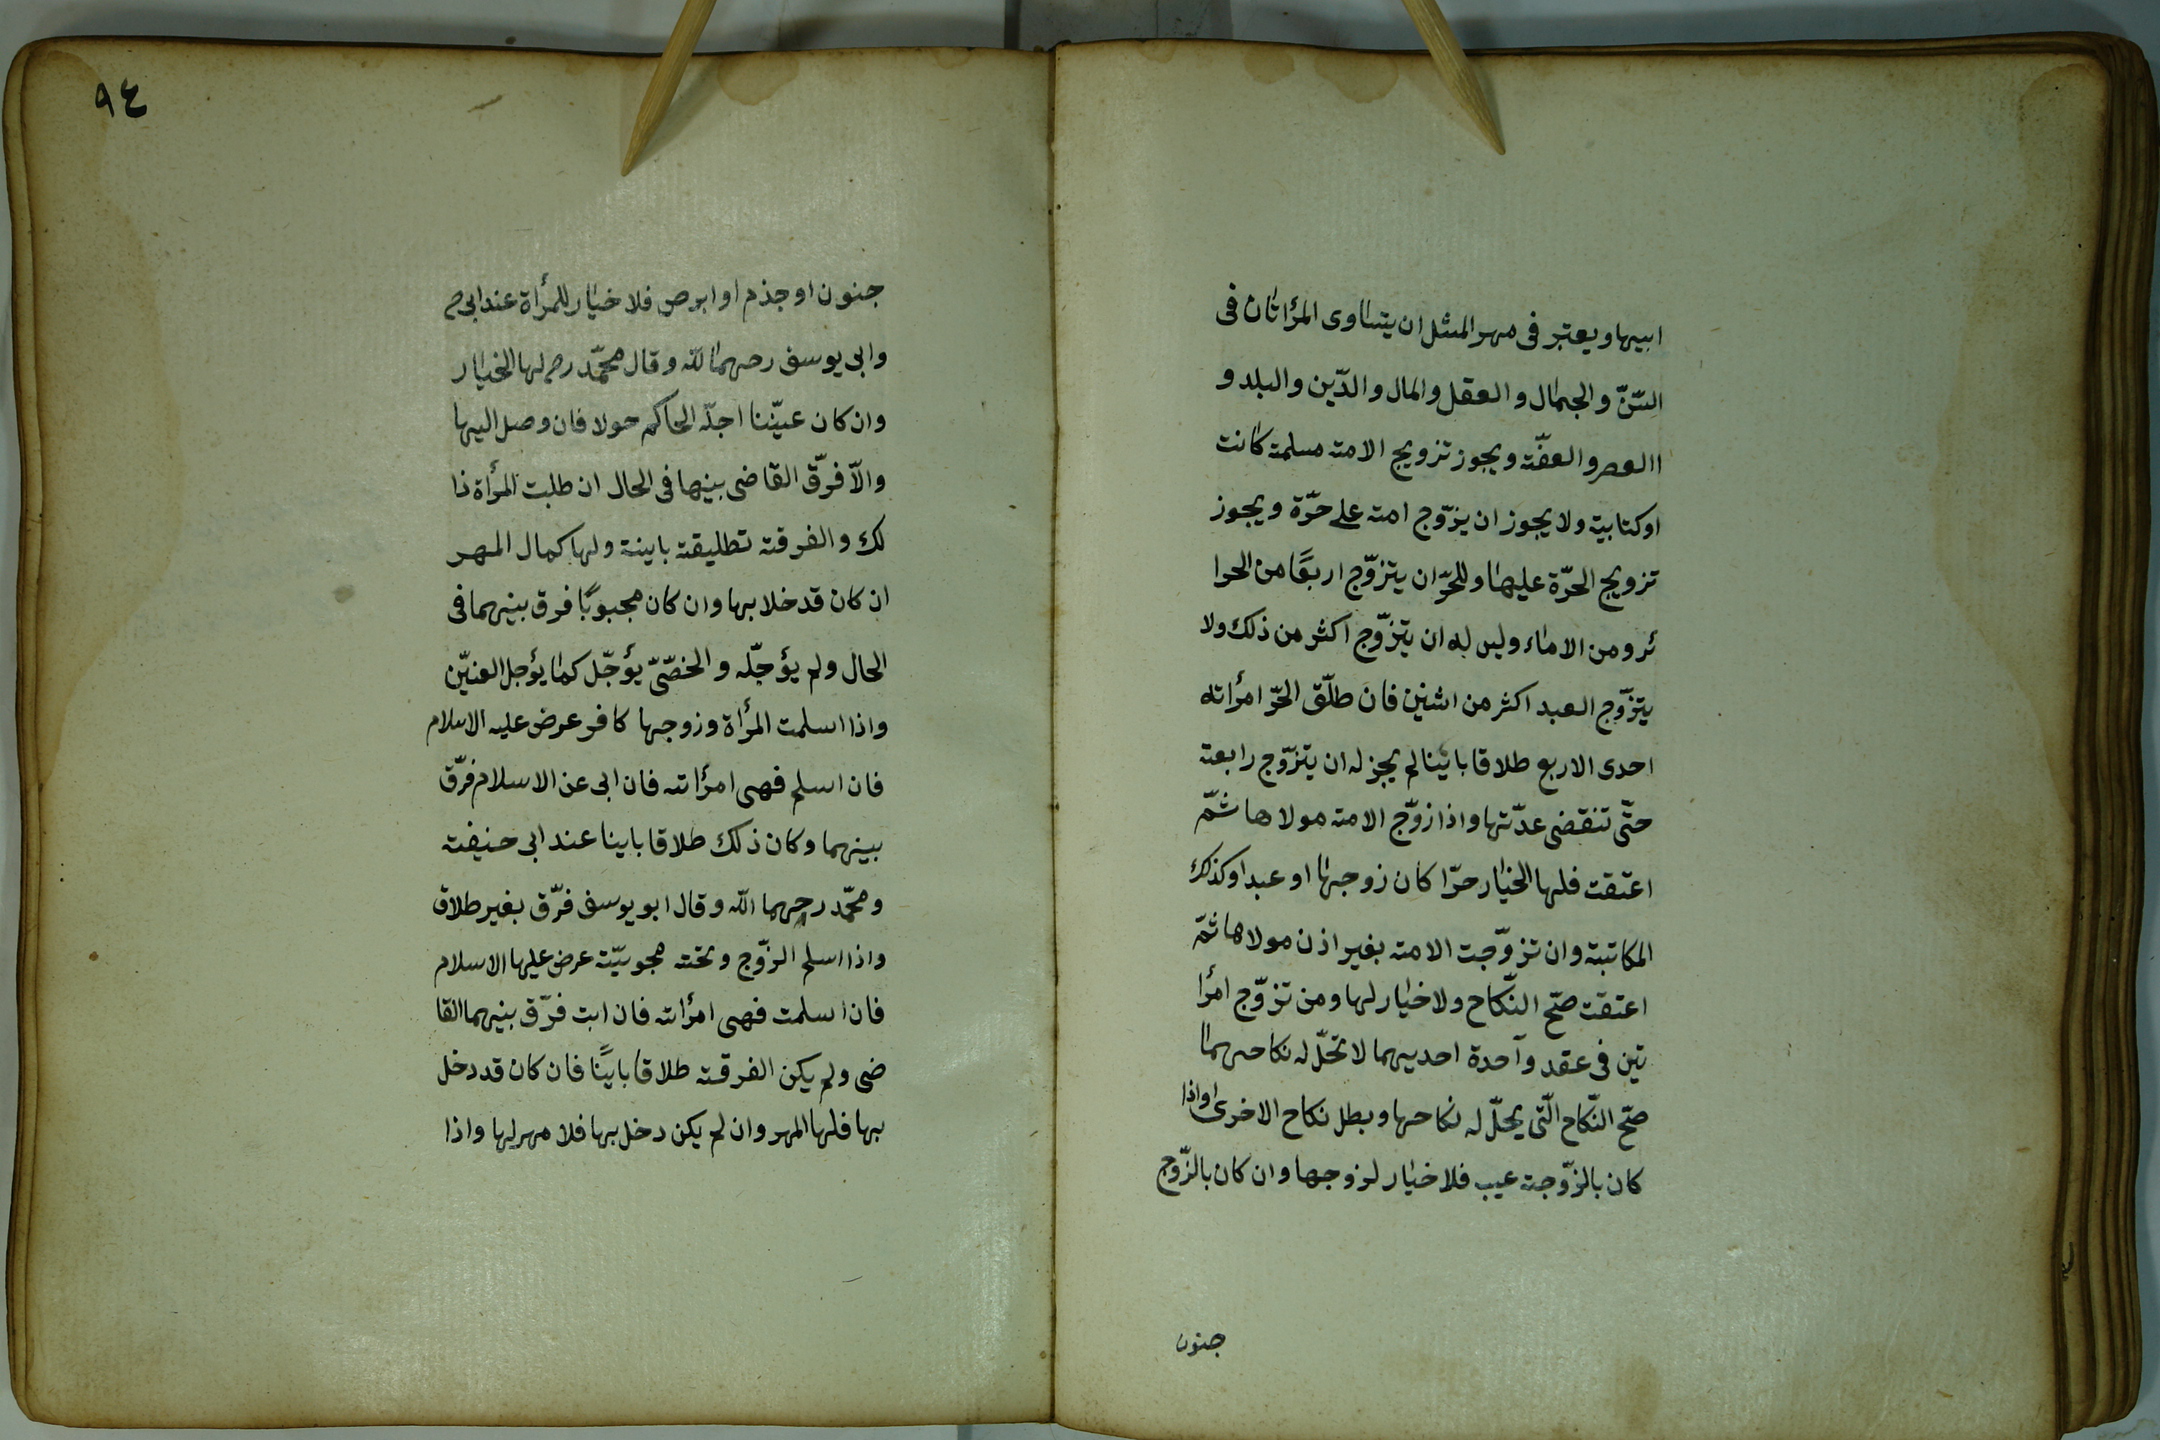 ابيها ويعتبر فى مهر المثل ان يتساوى المرأتان فى
السّنّ والجمال والعقل والمال والدّين والبلد و
االعصر والعفّة ويجوز تزويج الامة مسلمة كانت
اوكتابية ولا يجوز ان يزّوج امة على حرّة ويجوز
تزويج الحرّة عليها وللحرّ ان يتزوّج اربعًا من الحرا
ئر ومن الاماء وليس له ان يتزوّج اكثر من ذلك ولا
يتزوّج العبد اكثر من اثنين فان طلّق الحرّ امرأته
احدى الاربع طلاقا باينا لم يجز له ان يتزوّج رابعة
حتّى تنقضى عدّتها واذا زوّج الامة مولاها ثمّ
اعتقت فلها الخيار حرّا كان زوجها او عبدا وكذلك
المكاتبة وان تزوّجت الامة بغير اذن مولاها ثمّ
اعتقت صحّ النّكاح ولا خيار لها ومن تزوّج امرأ
تين فى عقد واحدة احديهما لا تحلّ له نكاحهما
صحّ النّكاح الّتى يحلّ له نكاحها وبطل نكاح الاخرى واذا
كان بالزّوجة عيب فلا خيار لزوجها وان كان بالزّوج
جنون
٩٤
جنون او جذم او ابرص فلا خيار للمرأة عند ابى ح
وابى يوسف رحمهما الله وقال محمّد رح لها الخيار
وان كان عنّينا اجلّه الحاكم حولا فان وصل اليها
والّا فرّق القاضى بينهما فى الحال ان طلبت المرأة ذا
لك والفرقة تطليقة باينة ولها كمال المهر
ان كان قد خلا بها وان كان مجبوبًا فرق بينهما فى
الحال ولم يؤجّله والخصّىّ يؤجّل كما يؤجل العنيّن
واذا اسلمت المرأة وزوجها كافر عرض عليه الاسلام
فان اسلم فهى امرأته فان ابى عن الاسلام فرّق
بينهما وكان ذلك طلاقا باينا عند ابى حنيفة
ومحمّد رحهما الله وقال ابو يوسف فرّق بغير طلاق
واذا اسلم الزّوج وتحته مجوسيّة عرض عليها الاسلام
فان اسلمت فهى امرأته فان ابت فرّق بينهما القا
ضى ولم يكن الفرقة طلاقا باينًا فان كان قد دخل
بها فلها المهر وان لم يكن دخل بها فلا مهر لها واذا